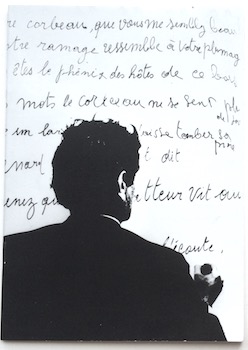 re corbeau, que vous me semblez beau
otre ramage ressemble à votre plumag
êtes le phénix des hôtes de ce bois
mots le corbeau ne se sent pl
de joi
un lar tomber sa
proie
nard t dit
enez qu tteur vit au
l'écoute.